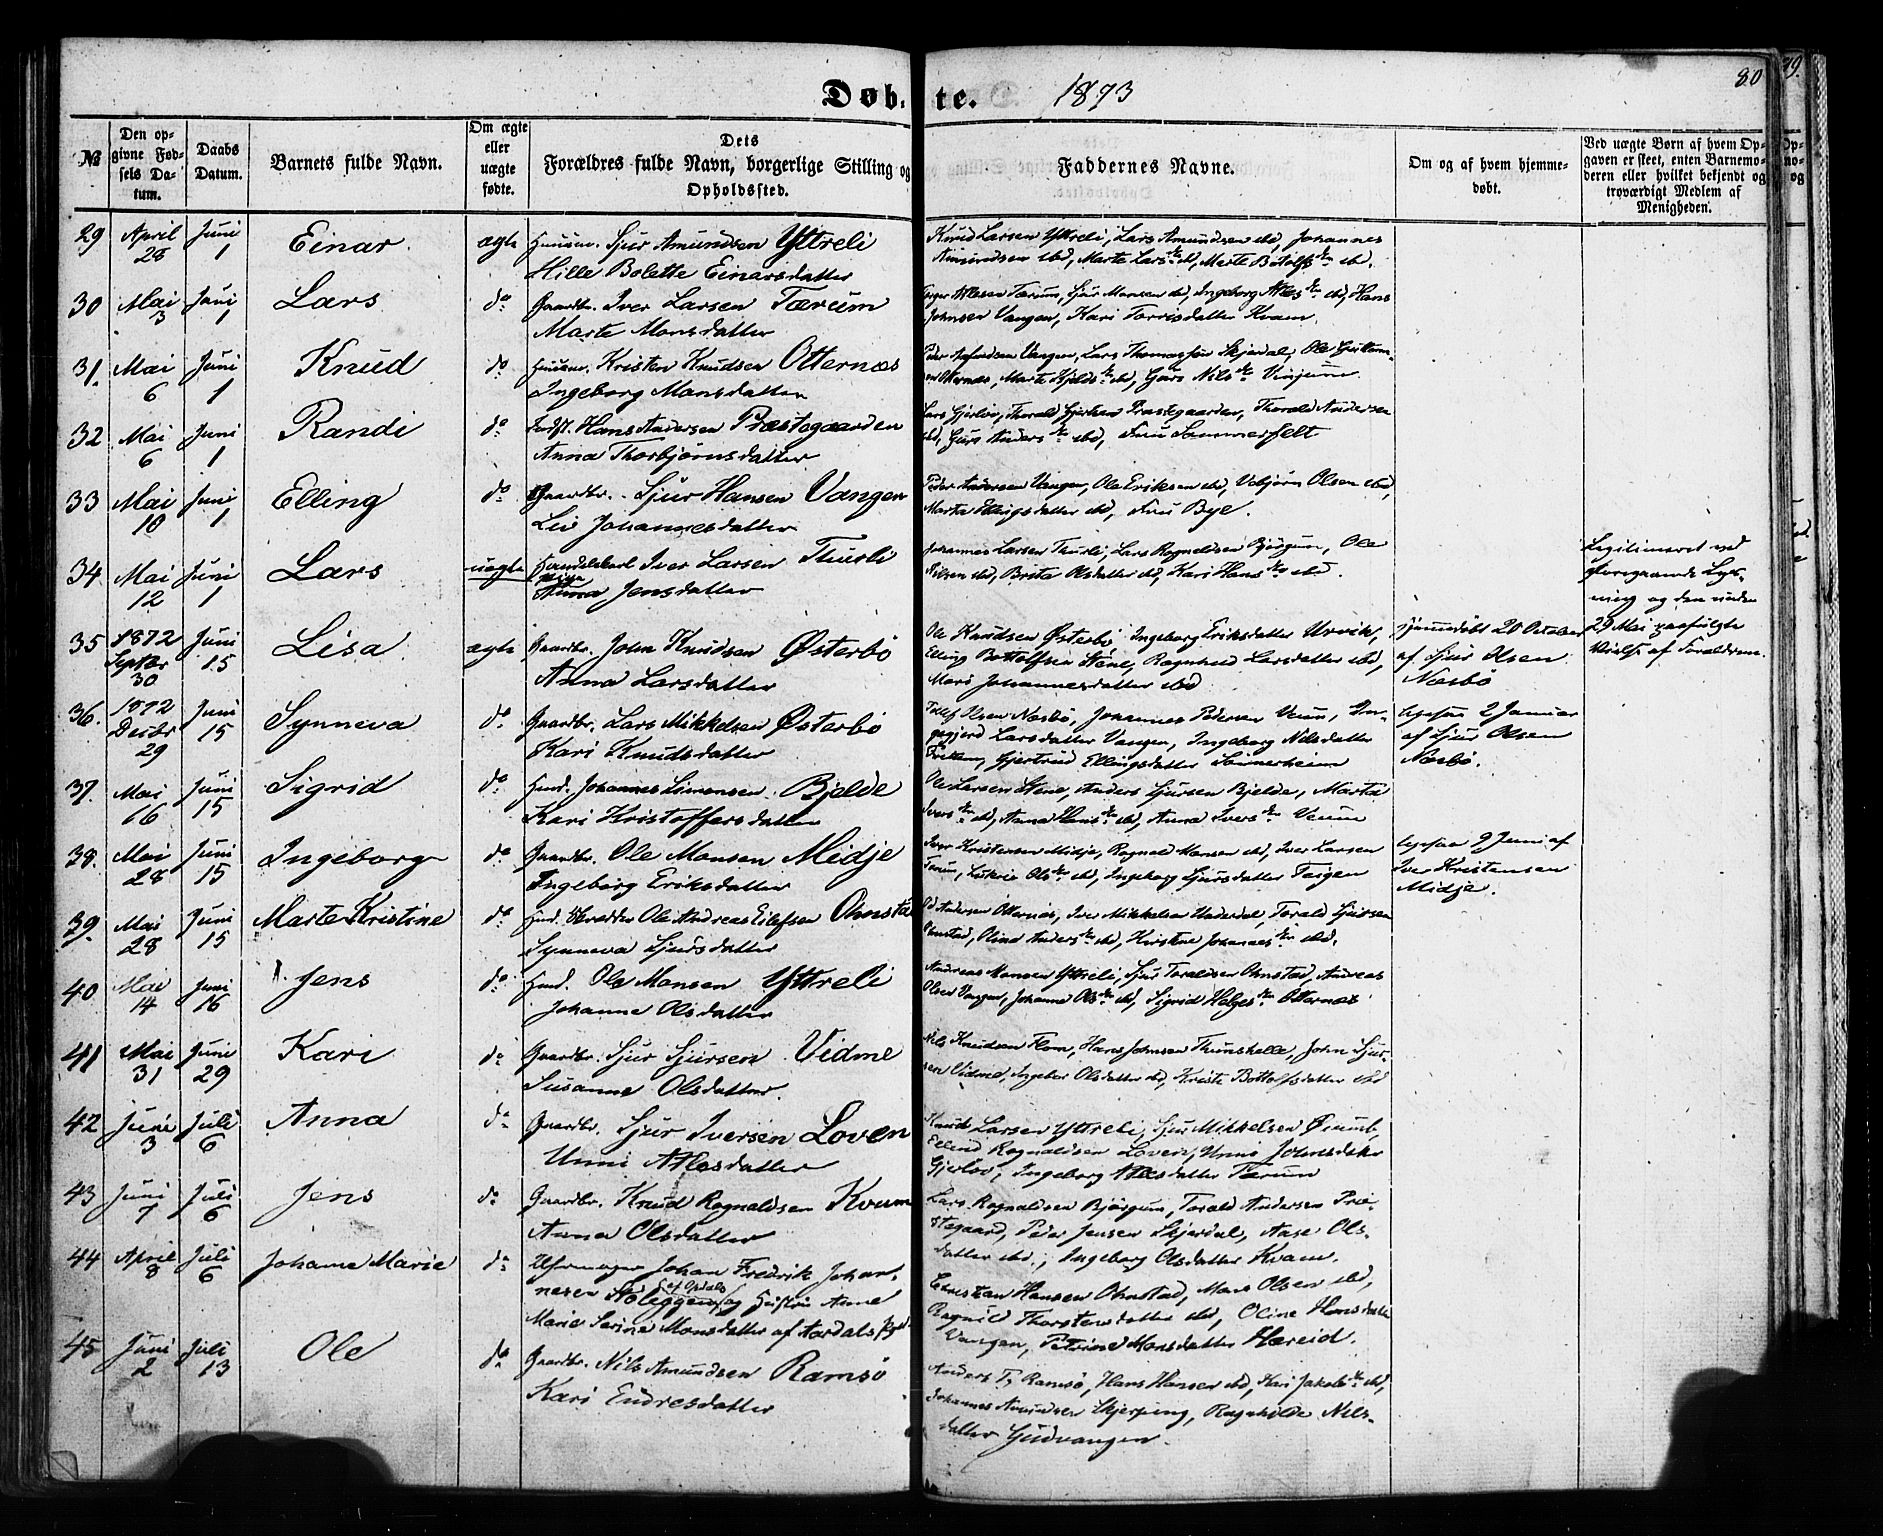 Døb- te. 1873
80
№
Den op-
givne Fød-
sels Da-
tum.
Daabs
Datum.
Barnets fulde Navn.
Om ægte
eller
uægte
fødte.
Dets
Forældres fulde Navn, borgerlige Stilling og
Opholdssted.
Faddernes Navne.
Om og af hvem hjemme-
døbt.
Ved uægte Børn af hvem Op-
gaven er skeet, enten Barnemo-
deren eller hvilket bekjendt og
troværdigt Medlem af
Menigheden.
29 April 28 Juni 1 Einar ægte Huusm. Sjur Amundsen Yttreli
Hille Bolette Einarsdatter
Knud Larsen Yttreli, Lars Amundsen ibd, Johannes
Amundsen ibd, Marte Lars ibd, Marte Botolfs ibd.
30 Mai 3 Juni 1 Lars do Gaardbr. Iver Larsen Tærum
Marte Monsdatter
Atlesen Tærum, Sjur Monsen ibd, Ingeborg Atles ibd, Hans
Johnsen Vangen, Kari Torrisdatter Kvam.
31. Mai 6 Juni 1 Knud do Huusm. Kristen Knudsen Otternæs
Ingeborg Monsdatter
Vangen, Lars Skjerdal, Ole
Otternæs, Marte ibd, Guro Nils Vinjum.
32 Mai 6 Juni 1 Randi do Hans Andersen Præstegaarden
Anna Thorbjørnsdatter
Lars Gjerløv, Thorald Præstegaarden, Thorald Andersen
ibd, Guro Anders ibd, Fru Sommerfelt
33 Mai 10 Juni 1 Elling do Gaardbr. Sjur Hansen Vangen
Liv Johannesdatter
Peder Andersen Vangen, Ole Eriksen ibd, Vebjørn Olsen ibd,
Marta Ellingsdatter ibd, Fru Bye.
34 Mai 12 Juni 1 Lars uægte Iver Larsen Thurli
pige
Anna Jensdatter
Johannes Larsen Thurli, Lars Rognaldsen Bjørgum, Ole
Nilsen ibd, Brita Olsdatter ibd, Kari Hans ibd.
Legitimeret ved
foregaaende Lys-
ning og den under
29 Mai paafulgte
Vielse af Forældrene.
35 1872 Septbr 30 Juni 15 Lisa ægte Gaardbr. John Knudsen Østerbø
Anna Larsdatter
Ole Knudsen Østerbø, Ingeborg Eriksdatter Urvik,
Elling Bottolfsen Stene, Ragnhild Larsdatter ibd,
Mari Johannesdatter ibd
hjemmedøbt 20 October
af Sjur Olsen
Næsbø
36. 1872 Decbr 29 Juni 15 Synneva do Gaardbr. Lars Mikkelsen Østerbø
Kari Knudsdatter
Olsen Næsbø, Johannes Pedersen Venum, In-
Larsdatter Vangen, Ingeborg Nilsdatter
Gjertrud Ellingsdatter
ligesaa 2 Januar
af Sjur Olsen
Næsbø.
37. Mai 16 Juni 15 Sigrid do Huusm. Johannes Simonsen Bjelde
Kari Kristoffersdatter
Ole Larsen Stene, Anders Sjursen Bjelde, Marta
Ivers ibd, Anna Hans ibd, Anna Ivers
38. Mai 28 Juni 15 Ingeborg do Gaardbr. Ole Monsen Midje
Ingeborg Eriksdatter
Iver Kristensen Midje, Rognald Monsen ibd, Iver Larsen
Terum, Ols ibd, Ingeborg Sjursdatter Teigen
ligesaa 9 Juni af
Iver Kristensen
Midje.
39. Mai 28 Juni 15 Marte Kristine do Huusm. Skrædder Ole Andreas Eilefsen
Synneva Sjursdatter
Andersen Otternæs, Iver Mikkelsen Underdal, Torald Sjursen
Ohnstad, Olina Anders ibd, Kirstine Johannes ibd.
40 Mai 14 Juni 16 Jens do Huusm. Ole Monsen Yttreli
Johanne Olsdatter
Andreas Monsen Yttreli, Sjur Toraldsen Ohnstad, Andreas
Olsen Vangen, Johanne Ols ibd, Sigrid Helges Otternæs
41 Mai 31 Juni 29 Kari do Gaardbr. Sjur Sjursen Vidme
Susanne Olsdatter.
Nils Knudsen Flom, Hans Johnsen Thunshelle, John Sjur-
sen Vidme, Ingebor Olsdatter ibd, Kristi Bottolfsdatter ibd
42 Juni 3 Juli 6 Anna do Gaardbr. Sjur Iversen Loven
Unni Atlesdatter
Knud Larsen Yttreli, Sjur Mikkelsen
Ellend Rognaldsen Loven, Unni Johnsdatter
Gjerløv, Ingeborg Atlesdatter Tærum
43 Juni 7 Juli 6 Jens do Gaardbr. Knud Rognaldsen Kvam
Anna Olsdatter
Lars Rognaldsen Bjørgum, Torald Andersen Præ-
stegaard, Peder Jensen Skjerdal, Aase Ols-
datter ibd., Ingeborg Olsdatter Kvam.
44 April 8 Juli 6 Johanne Marie do Uhrmager Johan Fredrik Johan-
nesen Støleggen og Hustru Anne
Marie Serine Monsdatter af Aardals
Hansen Ohnstad, Mons Olsen ibd,
Ragnild Thorstensdatter ibd, Oline Hansdatter
Vangen, Petrine Monsdatter Hæreid.
45 Juni 2 Juli 13 Ole do Gaardbr. Nils Amundsen Ramsø
Kari Endresdatter
Anders Ramsø, Hans Hansen ibd, Kari Jakobs ibd,
Johannes Amundsen Skjerping, Ragnhilde Nils-
datter Gudvangen.